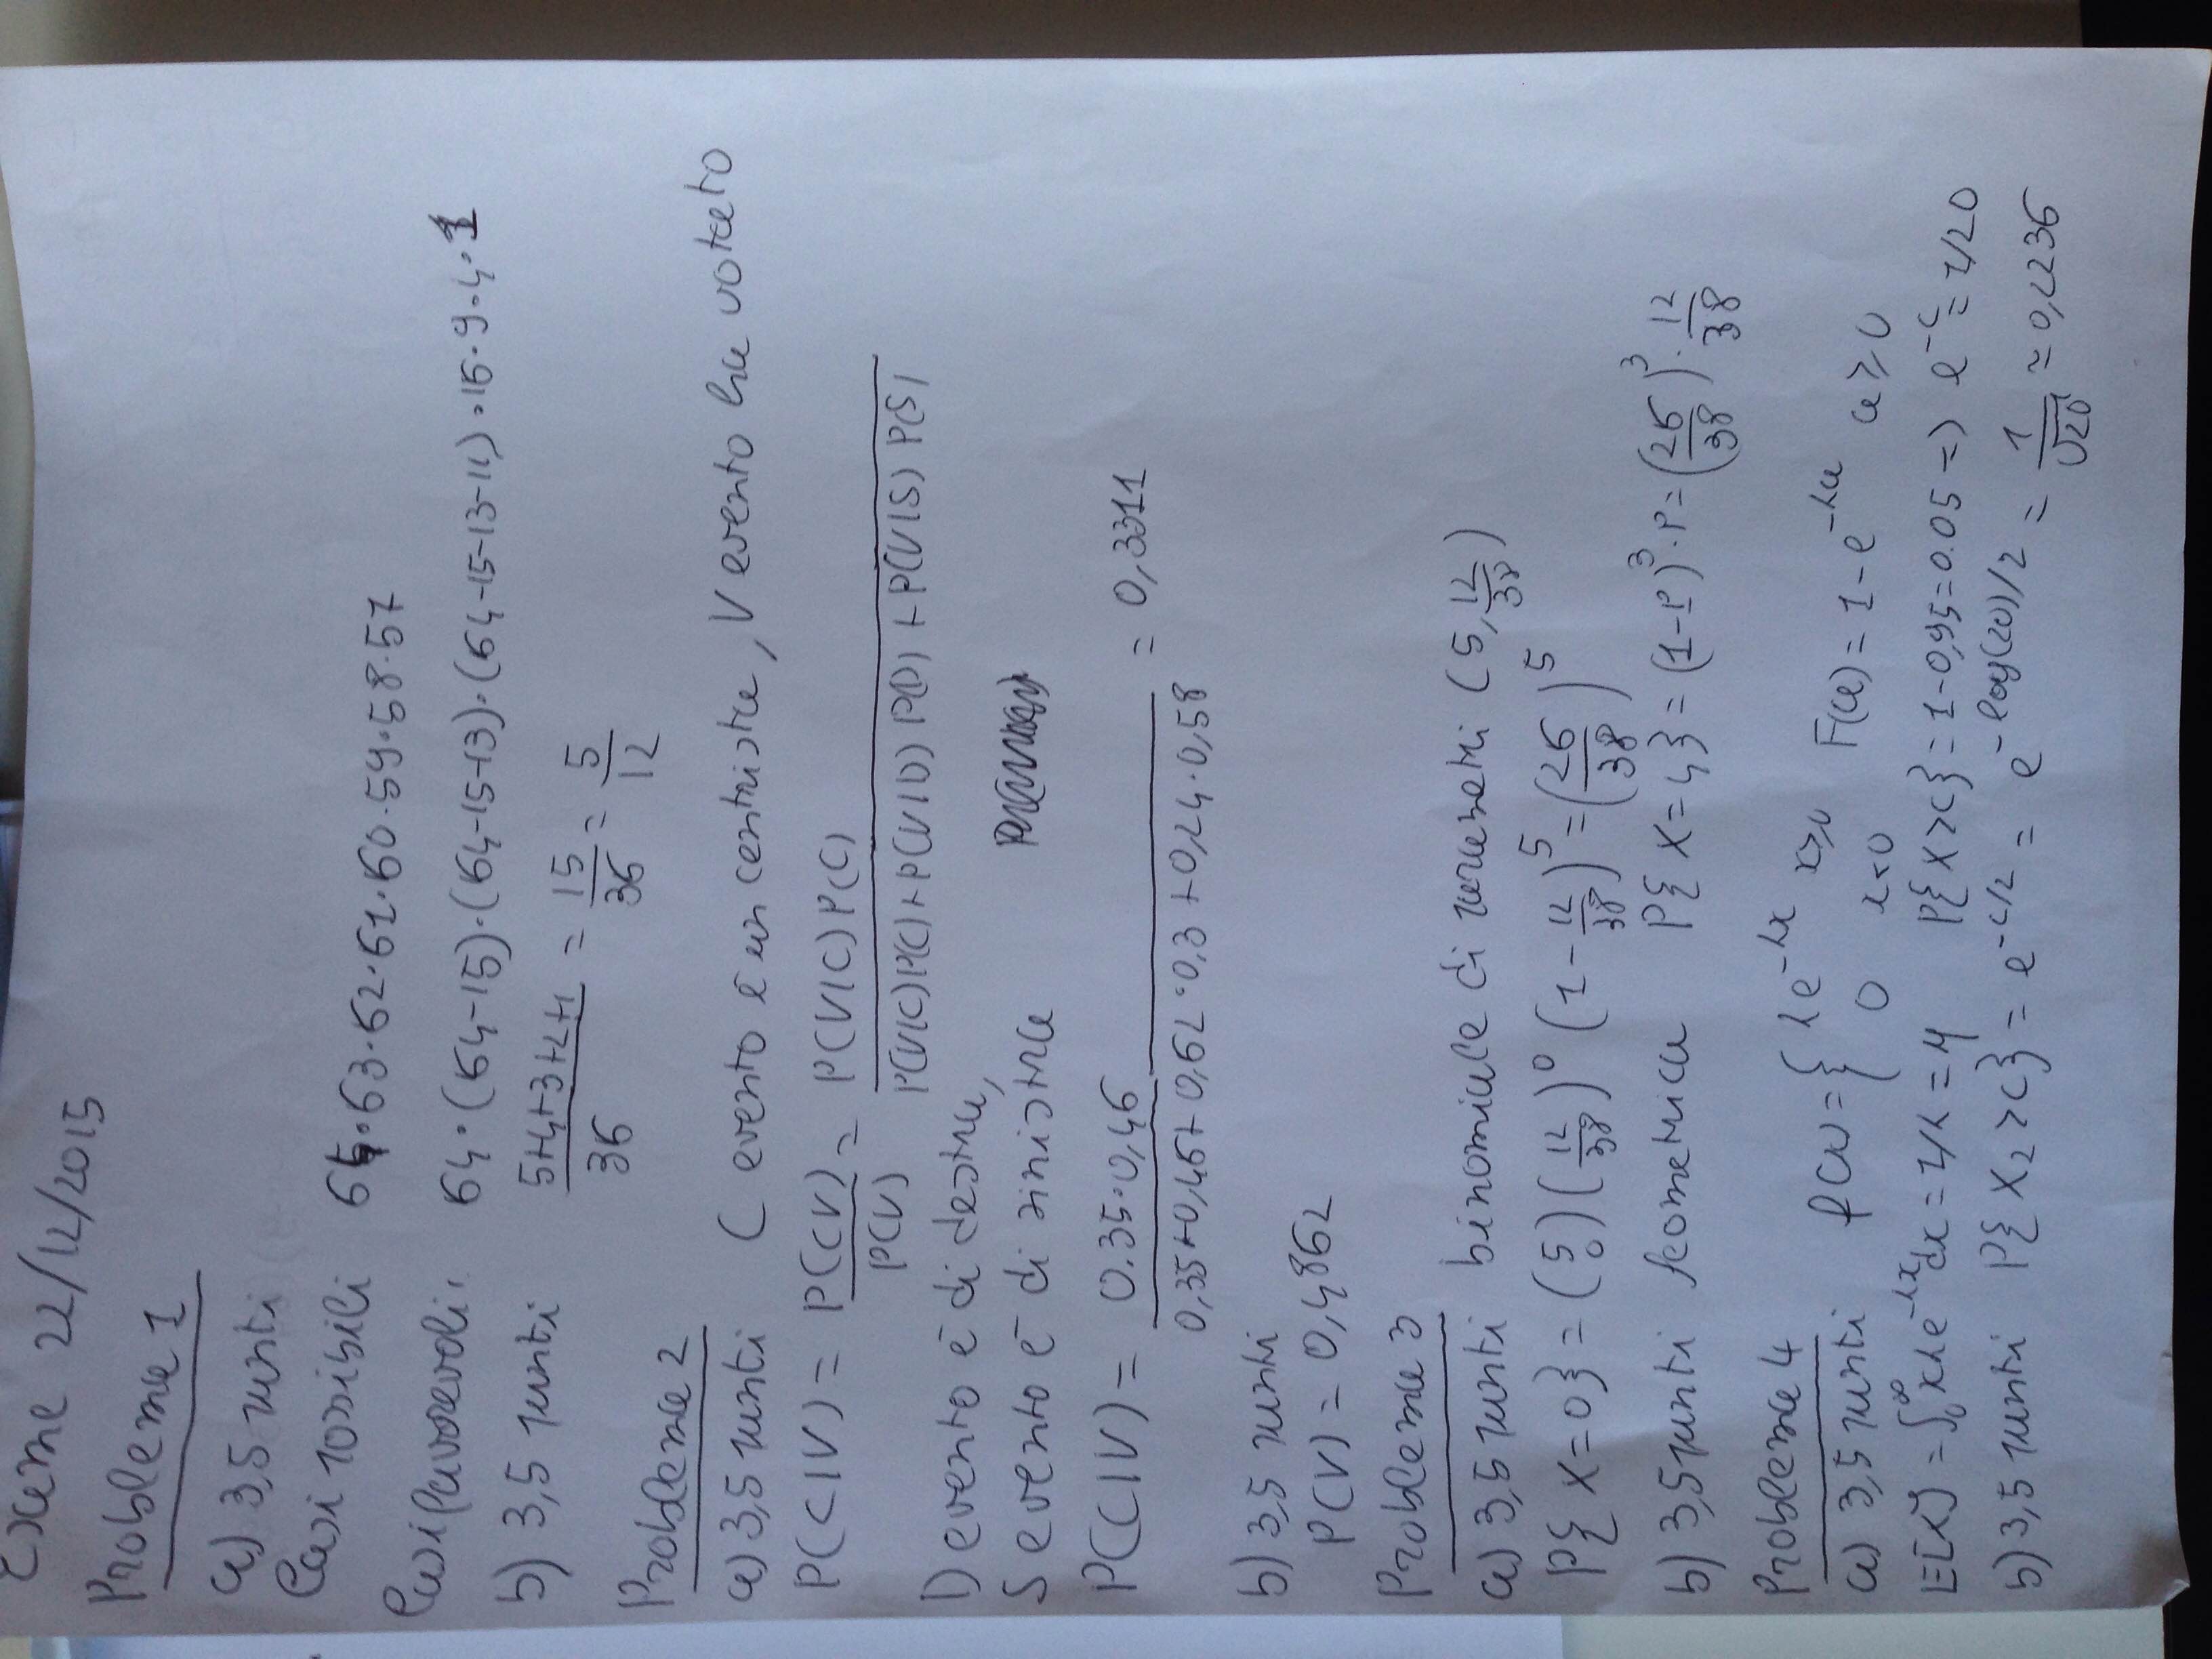 Esame 22/12/2015
Problema 1
a) 3,5 punti
Casi possibili 64·63·62·61·60·59·58·57
Casi favorevoli: 64·(64-15)·(64-15-13)·(64-15-13-11)·16·9·4·1
b) 3,5 punti (5+4+3+2+1)/36 = 15/36 = 5/12
Problema 2
a) 3,5 punti C evento è un centrista, V evento ha votato
P(C|V) = P(CV)/P(V) = P(V|C)P(C) / (P(V|C)P(C)+P(V|D)P(D)+P(V|S)P(S))
D evento è di destra,
S evento è di sinistra
P(C|V) = 0.35·0,46 / (0,35+0,46+0,62·0,3+0,24·0,58) = 0,3311
b) 3,5 punti
P(V) = 0,4862
Problema 3
a) 3,5 punti binomiale di parametri (5, 12/38)
P{X=0} = (5 0)(12/38)^0 (1-12/38)^5 = (26/38)^5
b) 3,5 punti geometrica P{X=4} = (1-p)^3·p = (26/38)^3·12/38
Problema 4
a) 3,5 punti f(x) = { λe^-λx x≥0 0 x<0 F(a) = 1-e^-λa a≥0
E[X] = ∫_0^∞ xλe^-λx dx = 1/λ = μ P{X>c} = 1-0,95 = 0.05 => e^-c = 1/20
b) 3,5 punti P{X_2>c} = e^-c/2 = e^-log(20)/2 = 1/√20 ≈ 0,2236